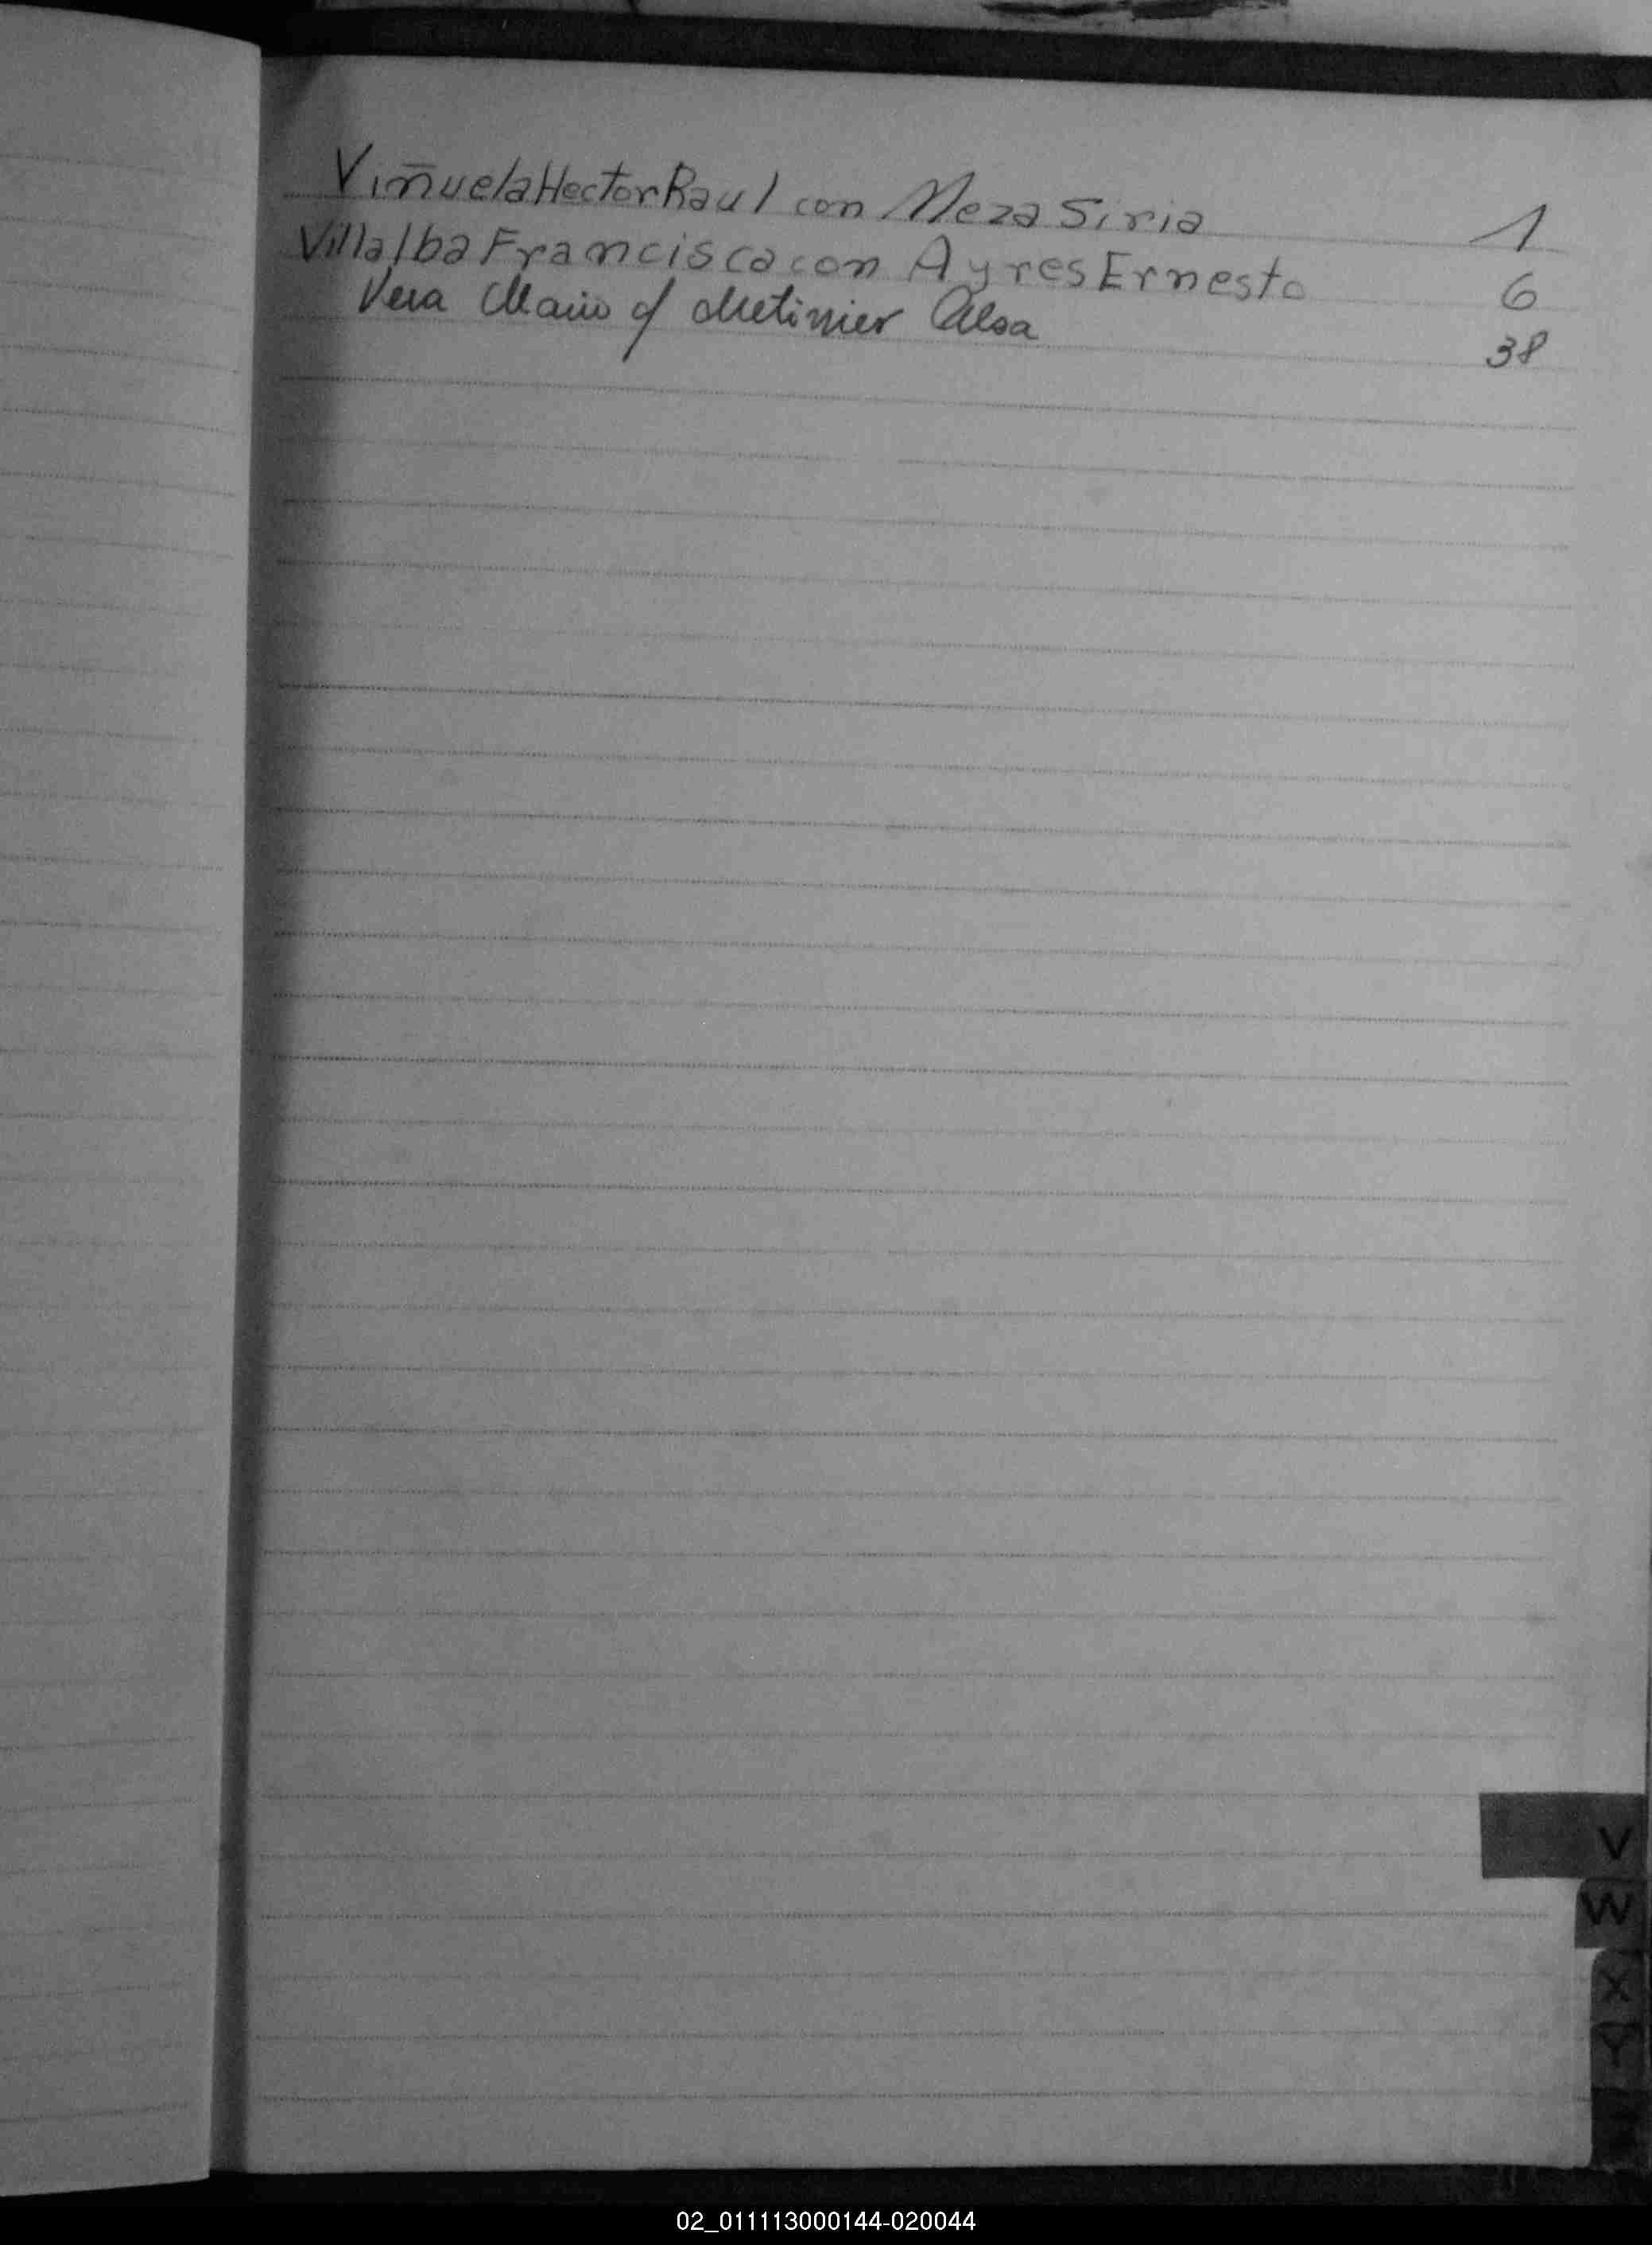 Viñuela Hector Raul con Meza Siria 1
Villalba Francisca con Ayres Ernesto 6
Vera Mario c/ 38
V
W
X
Y
02_011113000144-020044